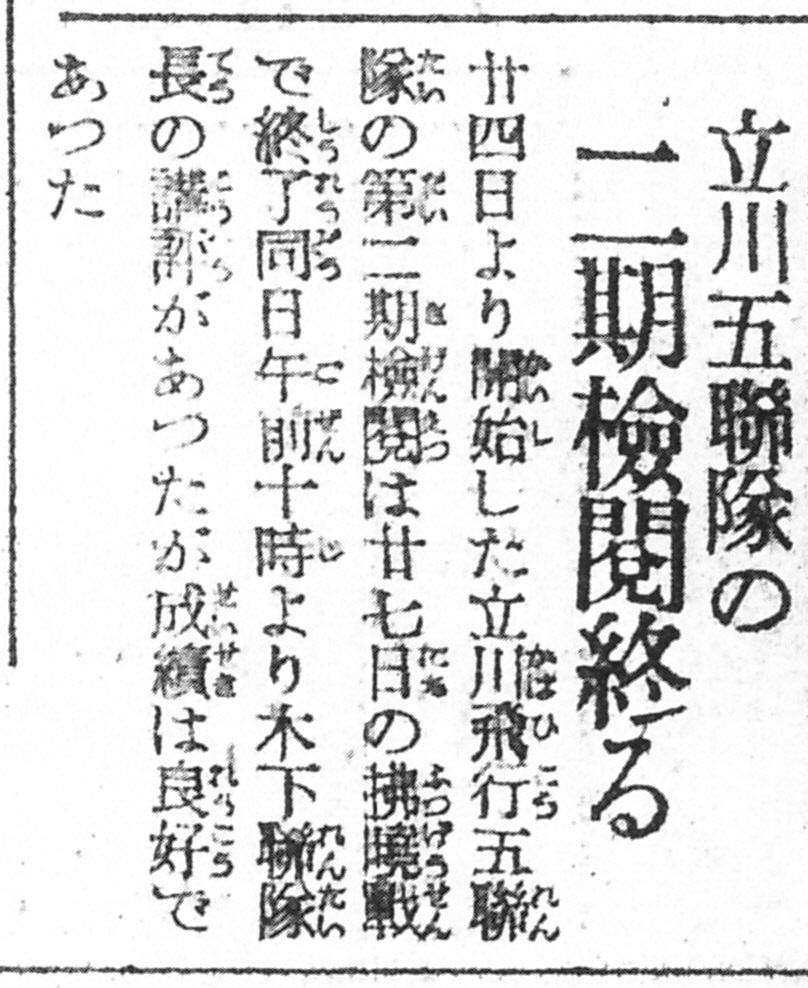 立川五聯隊の
二期檢閲終る
廿四日より開始した立川飛行五聯
隊の第二期檢閲は廿七日の拂曉戰
で終了同日午前十時より木下聯隊
長の講評があつたが成績は良好で
あつた